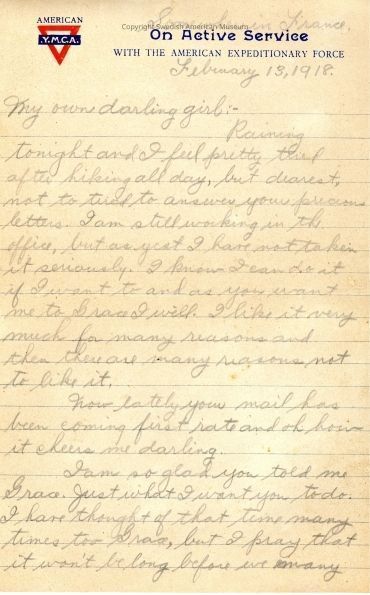 AMERICAN
Y.M.C.A.
Copyright Swedish American Museum
in France.
On Active Service
WITH THE AMERICAN EXPEDITIONARY FORCE
February 13, 1918.
My own darling girl:-
Raining
tonight and I feel pretty tired
after hiking all day, but dearest,
not to tired to answer your precious
letters. I am still working in the
office, but as yest I have not taken
it seriously. I know I can do it
if I want to and as you want
me to Grace I will. I like it very
much for many reasons and
then there are many reasons not
to like it.
Now lately your mail has
been coming first rate and oh how
it cheers me darling.
I am so glad you told me
Grace. Just what I want you to do.
I have thought of that time many
times too Grace, but I pray that
it won't be long before we many